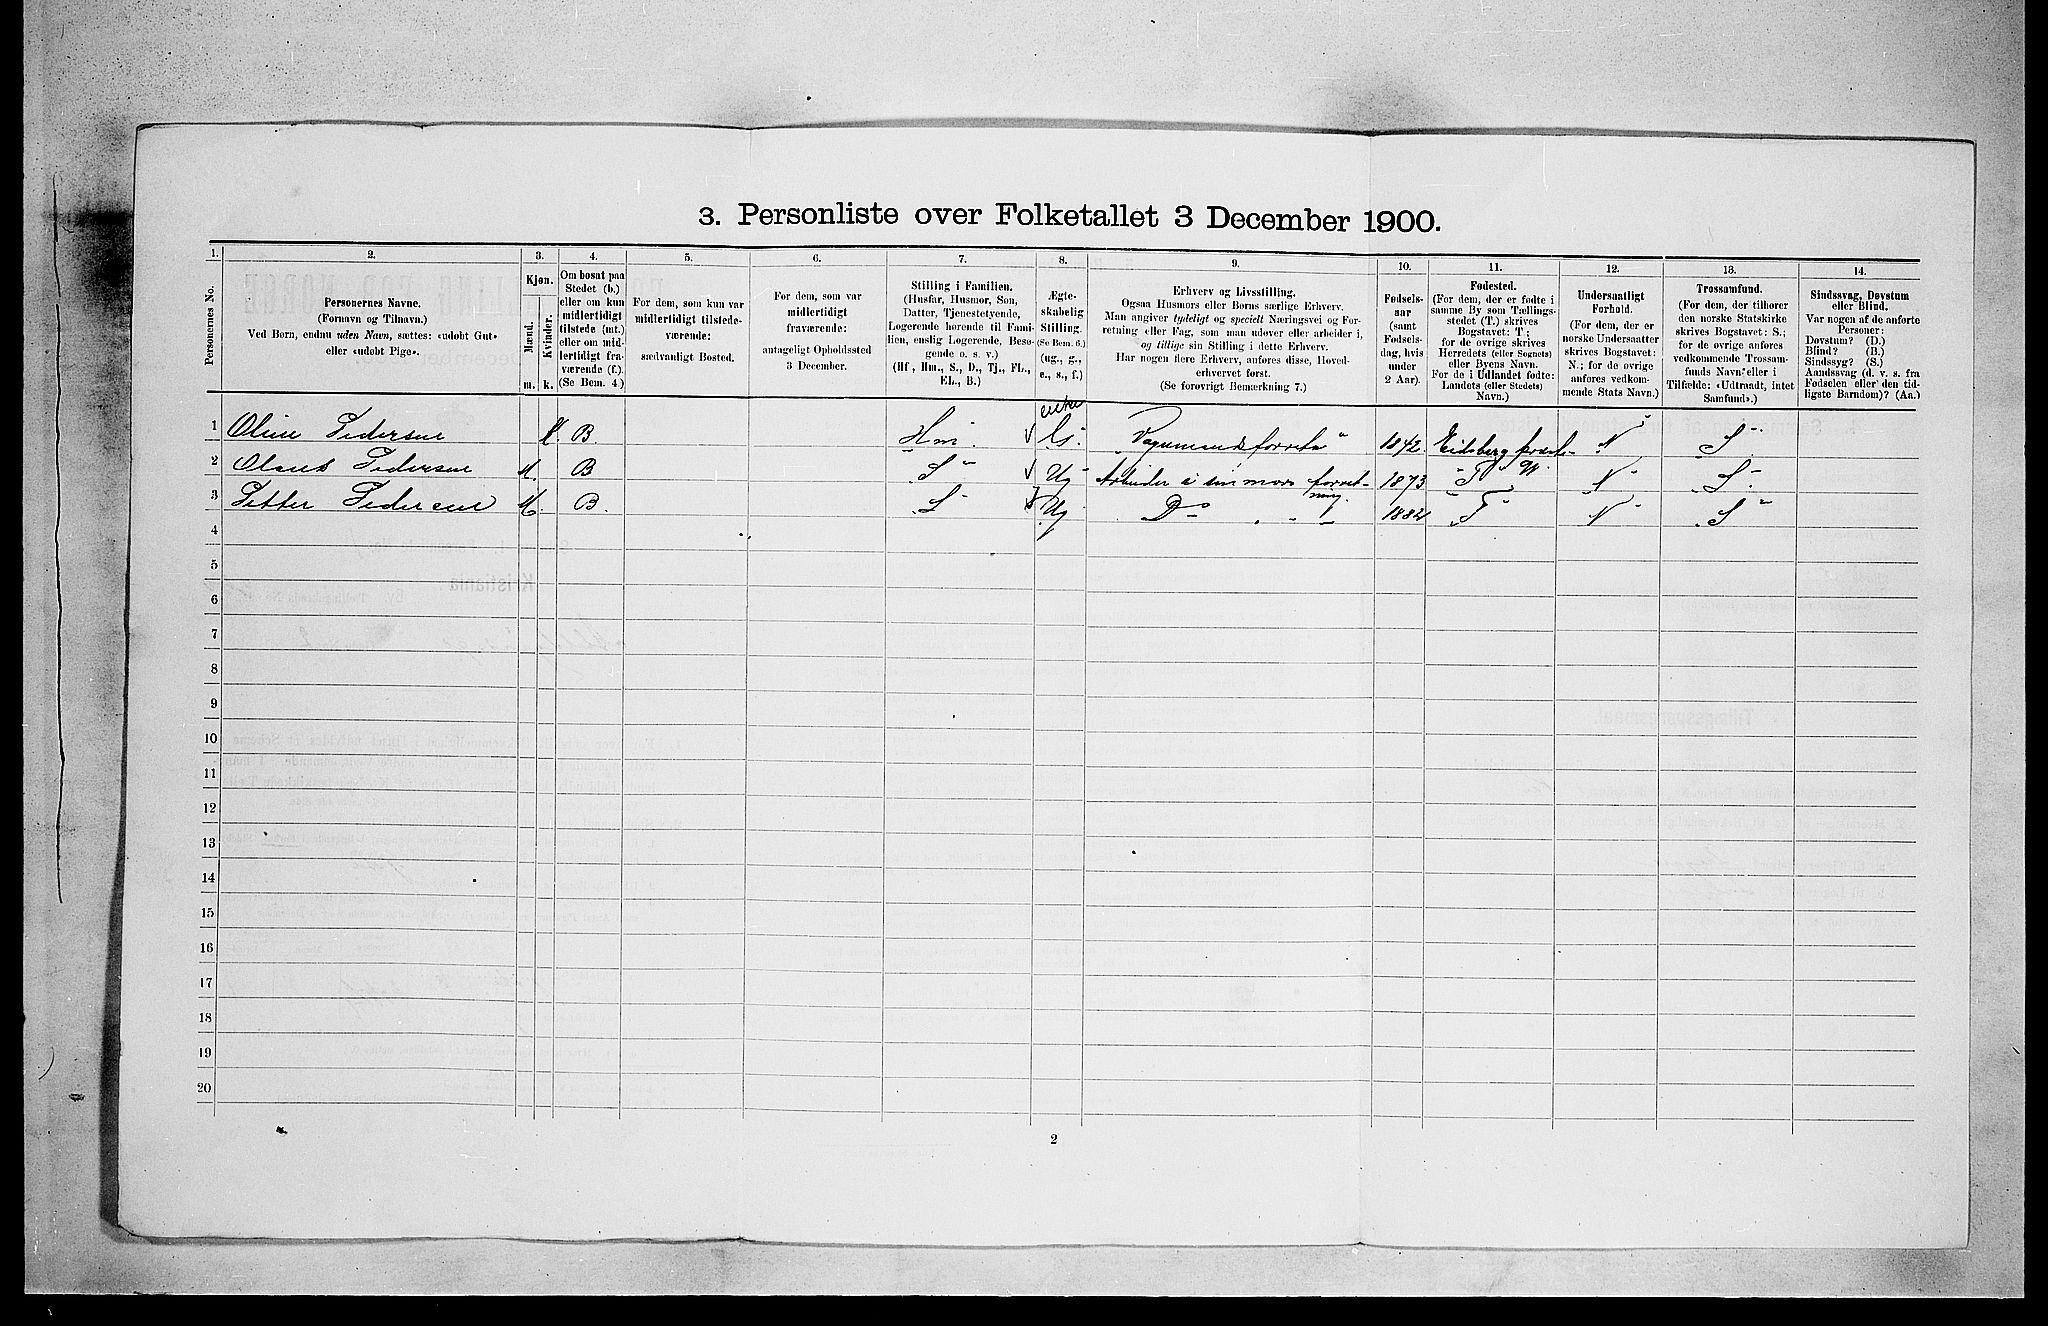 3. Personliste over Folketallet 3 December 1900.
1.
2.
3.
4.
5.
6.
7.
8.
9.
10.
11.
12.
13.
14.
Personernes No.
Personernes Navne.
(Fornavn og Tilnavn.)
Ved Børn, endnu uden Navn, sættes: «udøbt Gut»
eller «udøbt Pige».
Kjøn.
Mænd.
Kvinder.
m.
k.
Om bosat paa
Stedet (b.)
eller om kun
midlertidigt
tilstede (mt.)
eller om mid-
lertidigt fra-
værende (f.).
(Se Bem. 4.)
For dem, som kun var
midlertidigt tilstede-
værende:
sædvanligt Bosted.
For dem, som var
midlertidigt
fraværende:
antageligt Opholdssted
3 December.
Stilling i Familien.
(Husfar, Husmor, Søn,
Datter, Tjenestetyende,
Logerende hørende til Fami-
lien, enslig Logerende, Besø-
gende o. s. v.)
(Hf, Hm., S., D., Tj., FL.,
EL., B.)
Ægte-
skabelig
Stilling.
(Se Bem. 6.)
(ug., g.,
e., s., f.)
Erhverv og Livsstilling.
Ogsaa Husmors eller Børns særlige Erhverv.
Man angiver tydeligt og specielt Næringsvei og For-
retning eller Fag, som man udøver eller arbeider i,
og tillige sin Stilling i dette Erhverv.
Har nogen flere Erhverv, anføres disse, Hoved-
erhvervet først.
(Se forøvrigt Bemærkning 7.)
Fødsels-
aar
(samt
Fødsels-
dag, hvis
under
2 Aar).
Fødested.
(For dem, der er fødte i
samme By som Tællings-
stedet (T.) skrives
Bogstavet: T;
for de øvrige skrives
Herredets (eller Sognets)
eller Byens Navn.
For de i Udlandet fødte:
Landets (eller Stedets)
Navn.)
Undersaatligt
Forhold.
(For dem, der er
norske Undersaatter
skrives Bogstavet:
N.; for de øvrige
anføres vedkom-
mende Stats Navn.)
Trossamfund.
(For dem, der tilhører
den norske Statskirke
skrives Bogstavet: S.;
for de øvrige anføres
vedkommende Trossam-
funds Navn eller i
Tilfælde: «Udtraadt, intet
Samfund».)
Sindssvag, Døvstum
eller Blind.
Var nogen af de anførte
Personer:
Døvstum? (D.)
Blind? (B.)
Sindssyg? (S.)
Aandssvag (d. v. s. fra
Fødselen eller den tid-
ligste Barndom)? (Aa.)
enke
1 Oline Pedersen K. B Hm. 1842 Eidsberg N S
2 Olaus Pedersen M. B S Ug Arbeider i sin mors forret- 1873 T N S
ning.
3 Petter Pedersen M. B. S Ug Do 1882 T N S
4
5
6
7
8
9
10
11
12
13
14
15
16
17
18
19
20
2